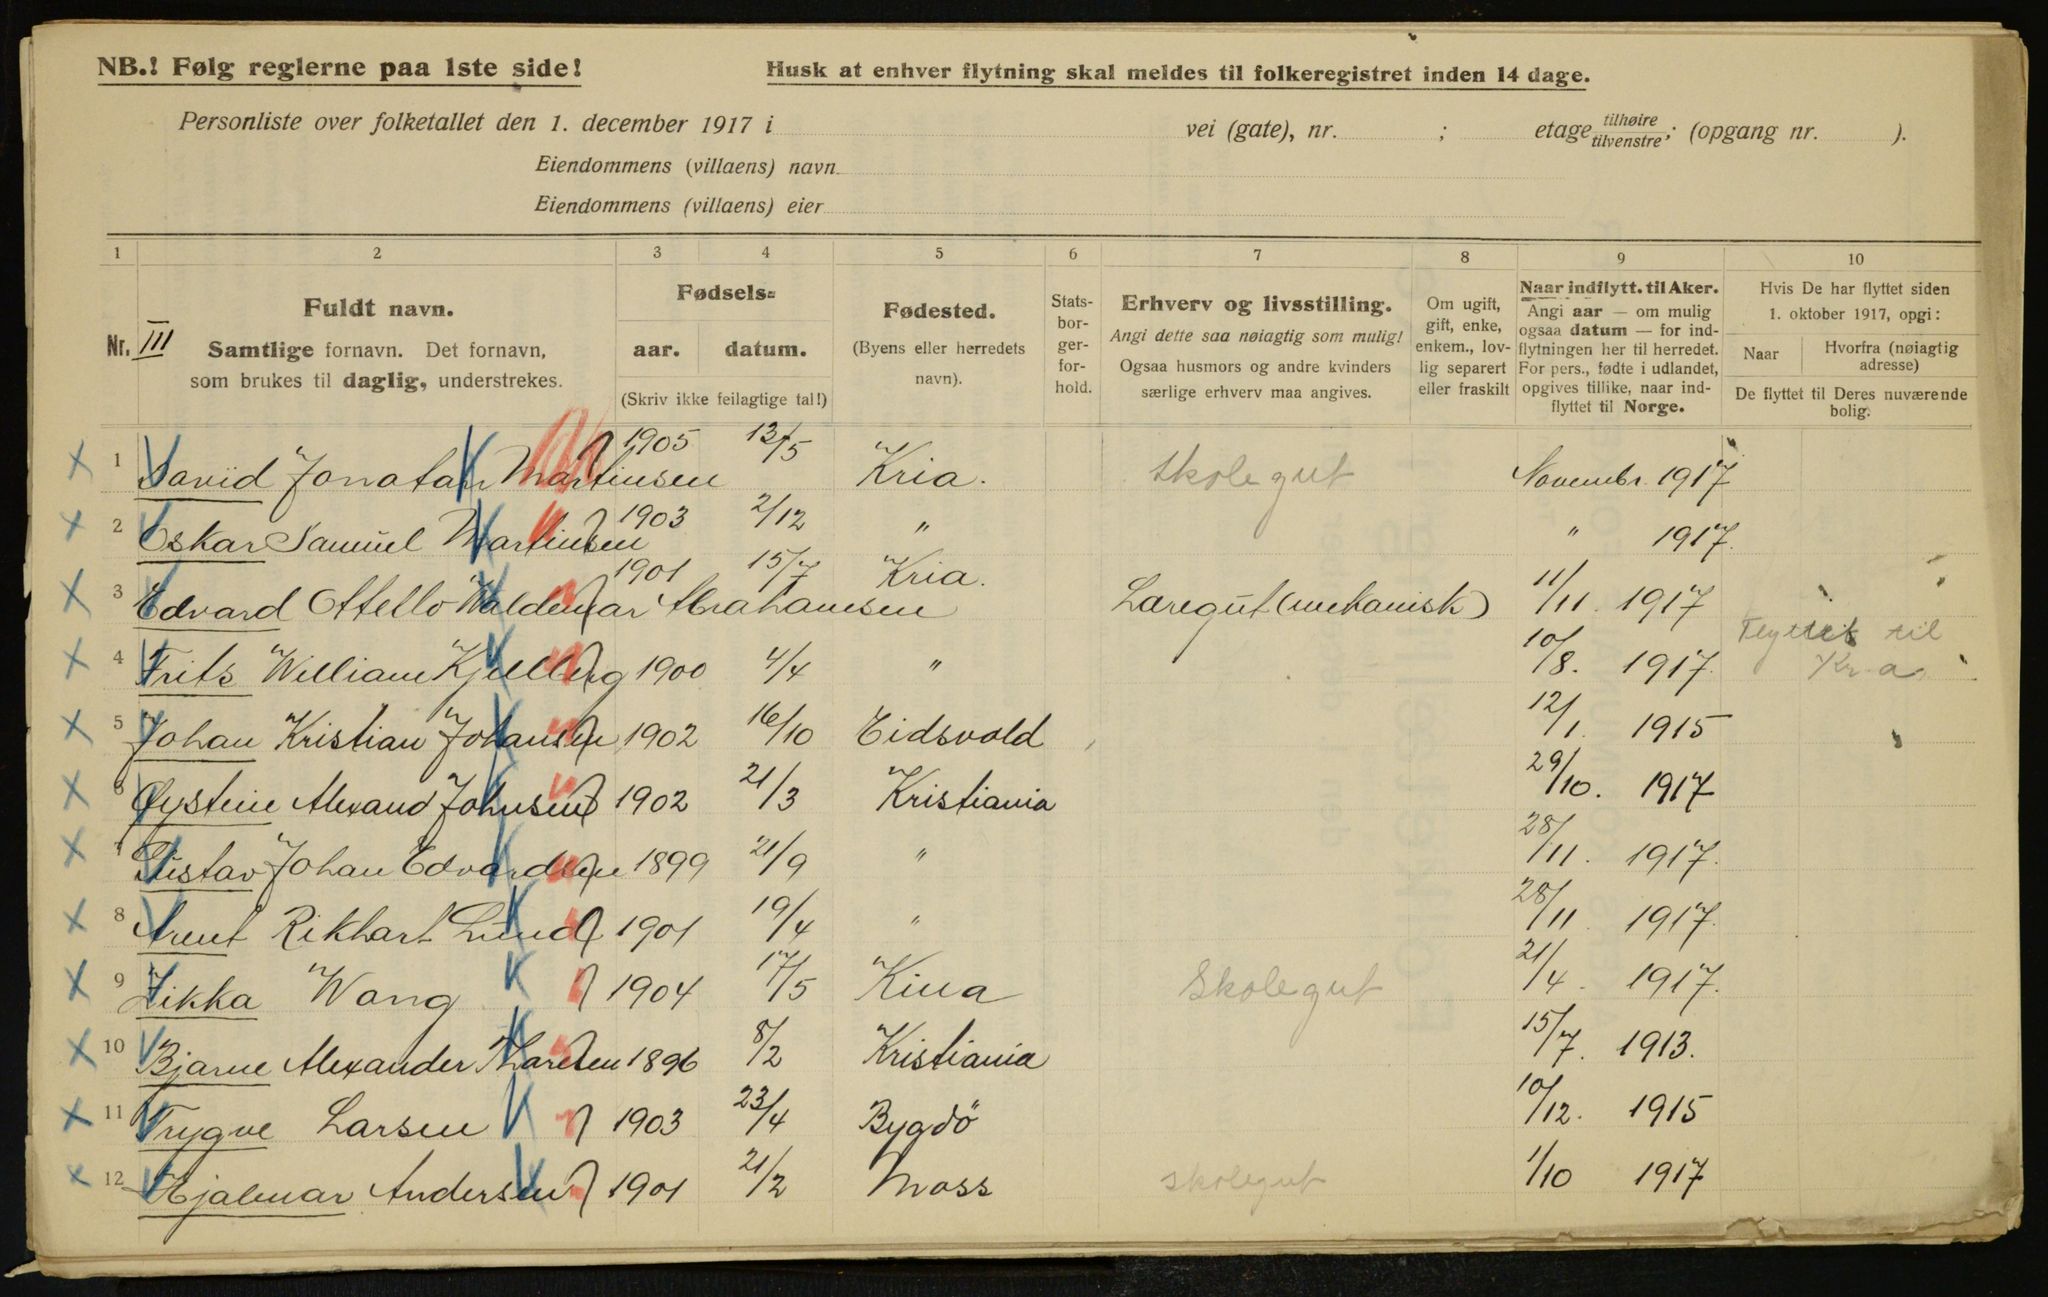 NB.! Følg reglerne paa 1ste side!
Husk at enhver flytning skal meldes til folkeregistret inden 14 dage.
Personliste over folketallet den 1. december 1917 i vei (gate), nr. ; etage tilhøire/tilvenstre; (opgang nr. ).
Eiendommens (villaens) navn
Eiendommens (villaens) eier
1 2 3 4 5 6 7 8 9 10
Nr. III
Fuldt navn.
Samtlige fornavn. Det fornavn,
som brukes til daglig, understrekes.
Fødsels-
aar. datum.
(Skriv ikke feilagtige tal!)
Fødested.
(Byens eller herredets
navn).
Stats-
bor-
ger-
for-
hold.
Erhverv og livsstilling.
Angi dette saa nøiagtig som mulig!
Ogsaa husmors og andre kvinders
særlige erhverv maa angives.
Om ugift,
gift, enke,
enkem., lov-
lig separert
eller fraskilt
Naar indflytt. til Aker.
Angi aar — om mulig
ogsaa datum — for ind-
flytningen her til herredet.
For pers., fødte i udlandet,
opgives tillike, naar ind-
flyttet til Norge.
Hvis De har flyttet siden
1. oktober 1917, opgi:
Naar Hvorfra (nøiagtig
adresse)
De flyttet til Deres nuværende
bolig.
1 David Jonatan Martinsen 1905 13/5 Kria. Skolegut Novembr. 1917
2 Oskar Samuel Martinsen 1903 2/12 " " 1917.
3 Edvard Otello Waldemar Abrahamsen 1901 15/7 Kria. Læregut (mekanisk) 11/11. 1917
4 Frits William Kjellberg 1900 4/4 " 10/8. 1917. Flyttet til
Kr.a.
5 Johan Kristian Johansen 1902 16/10 Eidsvold 12/1. 1915
6 Øystein Alexand Johnsen 1902 21/3 Kristiania 29/10. 1917
7 Gustav Johan Edvardsen 1899 21/9 " 28/11. 1917.
8 Arent Rikhart Lund 1901 19/4 " 28/11 1917.
9 Zikka Wang 1904 17/5 Kina Skolegut 21/4. 1917.
10 Bjarne Alexander Thoresen 1896 8/2 Kristiania 15/7. 1913.
11 Trygve Larsen 1903 23/4 Bygdö 10/12. 1915
12 Hjalmar Andersen 1901 21/2 Moss skolegut 1/10 1917